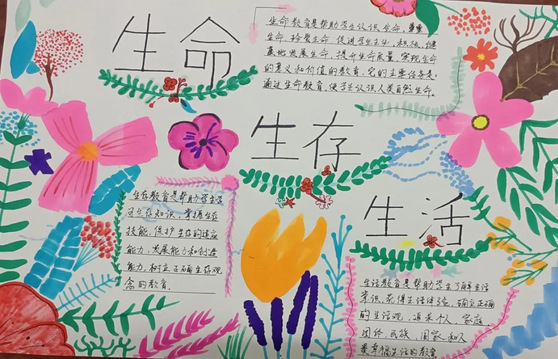 生命
生命教育是帮助学生认识生命、尊重
生命、珍爱生命,促进学生主动、积极、健
康地发展生命,提升生命质量,实现生命
的意义和价值的教育。它的主要任务是:
通过生命教育,使学生认识人类自然生命、
生存
生存教育是帮助学生学
习生存知识,掌握生存
技能,保护生存的适应
能力,发展能力和创造
能力,和树立正确生存观
念的教育。
生活
生活教育是帮助学生了解生活
常识,获得生活体验,确立正确
的生活观,追求个人、家庭
团体、民族、国家、和人
类幸福生活的教育